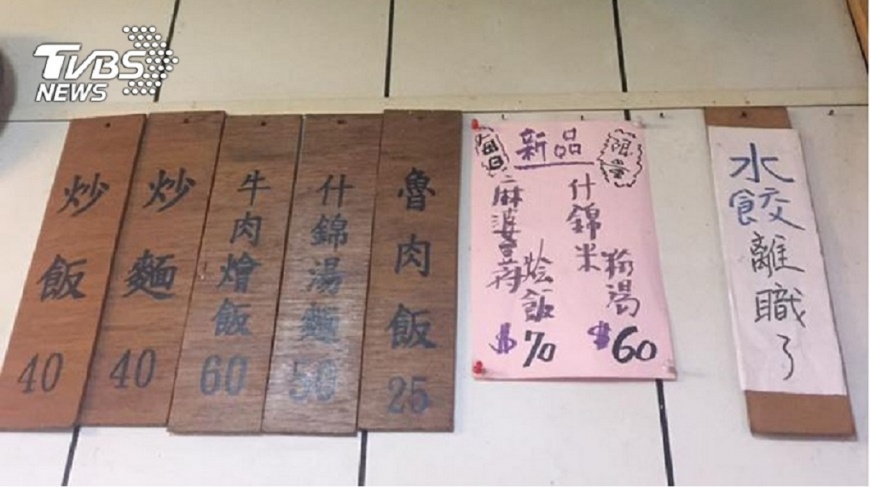 TVBS
NEWS
炒飯
40
炒麵
40
牛肉燴飯
60
什錦湯麵
50
魯肉飯
25
每日
新品
限量
什錦米粉湯
$60
麻婆豆腐燴飯
$70
水餃離職了